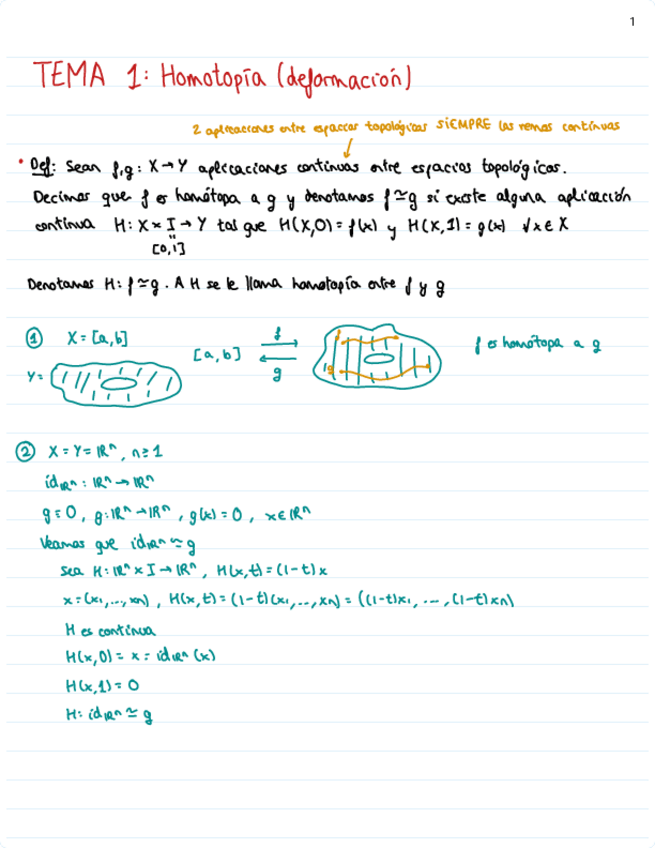 1
TEMA 1: Homotopía (deformación)
2 aplicaciones entre espacios topológicos SIEMPRE las vemos continuas
• Def: Sean f,g: X→Y aplicaciones continuas entre espacios topológicos.
Decimos que f es homótopa a g y denotamos f≃g si existe alguna aplicación
continua H: X×I→Y tal que H(x,0)=f(x) y H(x,1)=g(x) ∀x∈X
[0,1]
Denotamos H: f≃g. A H se le llama homotopía entre f y g
① X=[a,b]
[a,b] f g
f es homótopa a g
Y=
② X=Y=ℝⁿ, n≥1
idℝⁿ: ℝⁿ→ℝⁿ
g≡0, g:ℝⁿ→ℝⁿ, g(x)=0, x∈ℝⁿ
Veamos que idℝⁿ≃g
Sea H: ℝⁿ×I→ℝⁿ, H(x,t)=(1-t)x
x=(x₁,...,xₙ), H(x,t)=(1-t)(x₁,...,xₙ)=((1-t)x₁,...,(1-t)xₙ)
H es continua
H(x,0)=x=idℝⁿ(x)
H(x,1)=0
H: idℝⁿ≃g